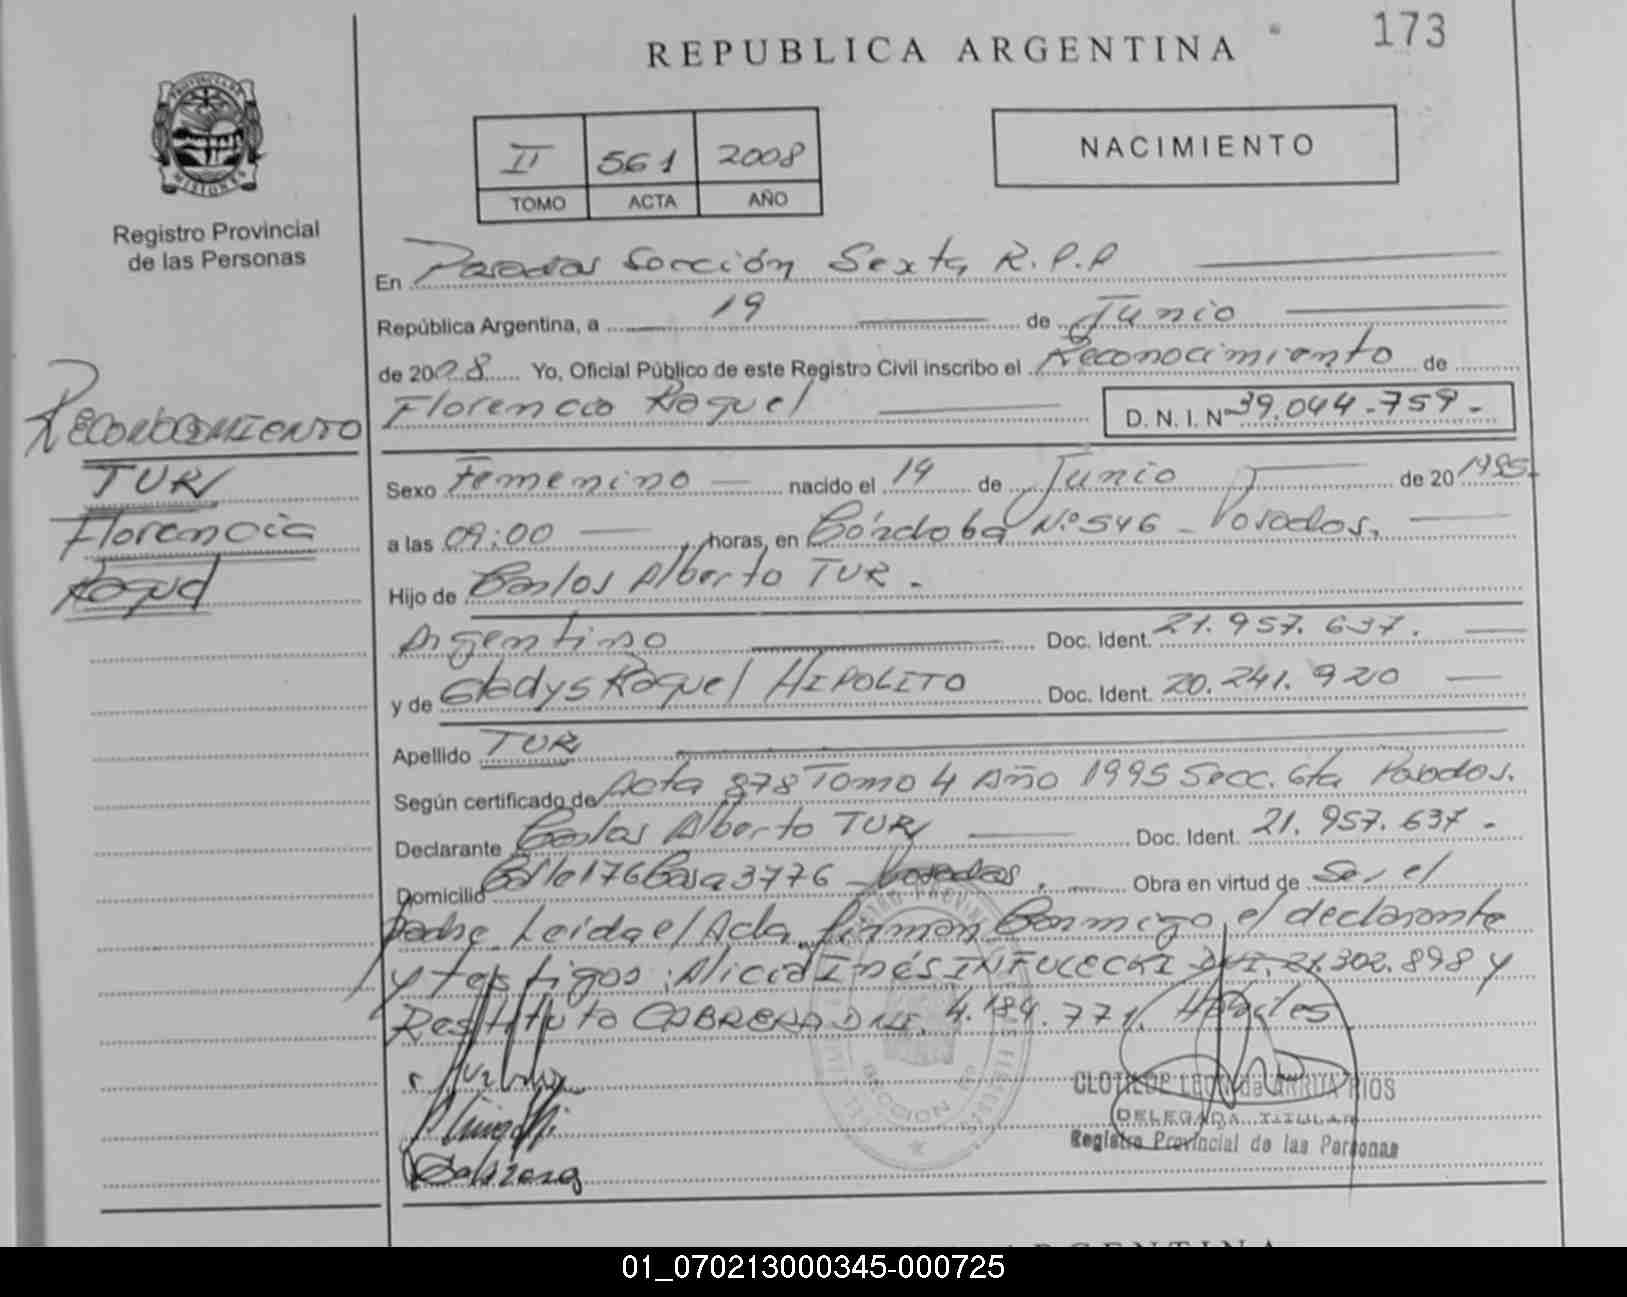 REPUBLICA ARGENTINA
173
PROVINCIA DE MISIONES
Registro Provincial
de las Personas
II 561 2008
TOMO ACTA AÑO
NACIMIENTO
En Posadas Sección Sexta R.P.P
República Argentina, a 19 de Junio
de 2008 Yo, Oficial Público de este Registro Civil inscribo el Reconocimiento de
Florencia Raquel D. N. I. Nº 39.044.759.-
Reconocimiento
TUR
Florencia
Raquel
Sexo Femenino nacido el 19 de Junio de 20 1995.
a las 09:00 horas, en Córdoba Nº 546 - Posadas.
Hijo de Carlos Alberto TUR.
Argentino Doc. Ident. 21.957.637.
y de Gladys Raquel HIPOLITO Doc. Ident. 20.241.920
Apellido TUR
Según certificado de Acta 878 Tomo 4 Año 1995 Secc. 6ta Posadas.
Declarante Carlos Alberto TUR Doc. Ident. 21.957.637.
Domicilio Calle 176 Casa 3776 - Posadas. Obra en virtud de Ser el
Padre Leída el Acta firman Conmigo el declarante
y testigos: Alicia Inés DNI. 21.302.898 y
Restituto CABRERA DNI. 4.184.771. Hábiles
Cabrera
DELEGADA TITULAR
Registro Provincial de las Personas
SECCION 6ª
01_070213000345-000725